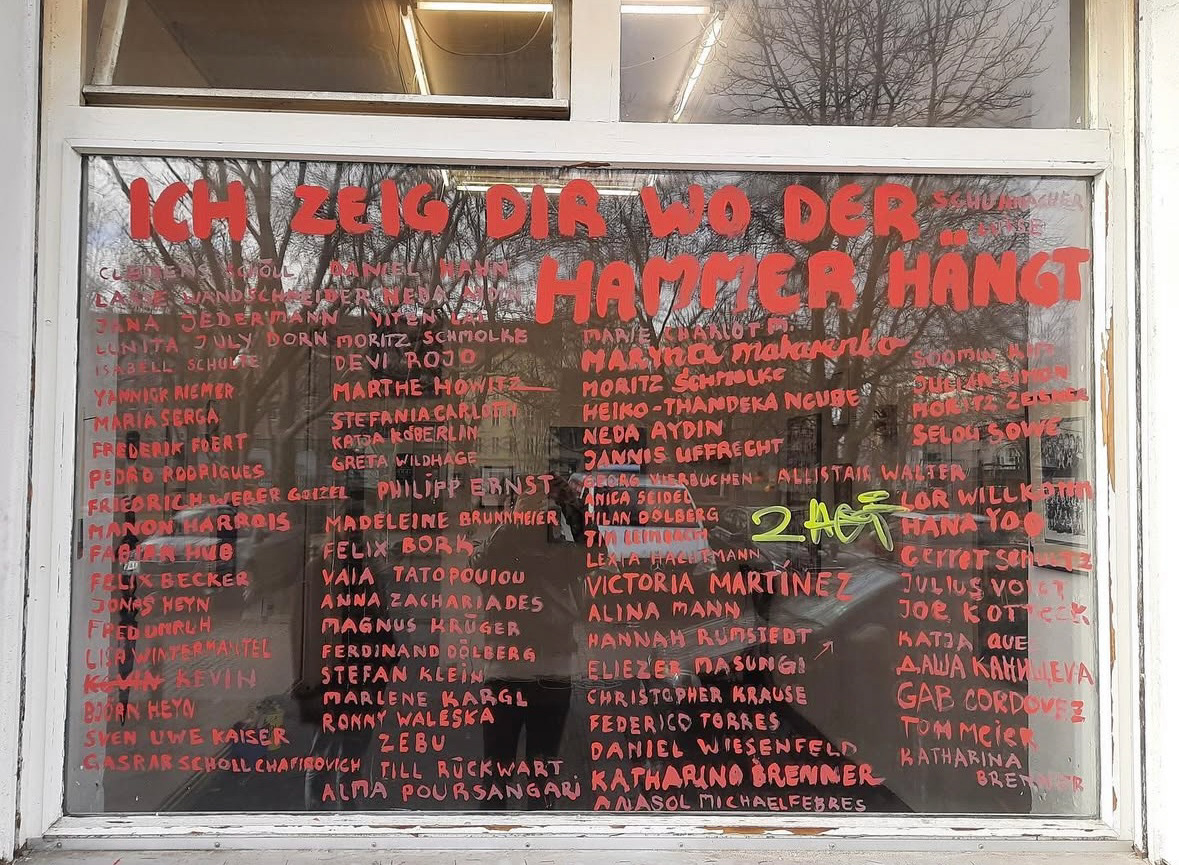 ICH ZEIG DIR WO DER
HAMMER HÄNGT
SCHUHMACHER
CLEMENS SCHÖLL
LASSE WANDSCHNEIDER
JANA JEDERMANN
LUNITA JULY DORN
ISABELL SCHULTE
YANNICK RIEMER
MARIA SERGA
FREDERIK FOERT
PEDRO RODRIGUES
FRIEDRICH WEBER GOIZEL
MANON HARROIS
FABIAN HUB
FELIX BECKER
JONAS HEYN
FRED UNRUH
LISA WINTERMANTEL
KEVIN KEVIN
BJÖRN HEYN
SVEN UWE KAISER
CASPAR SCHÖLL CHAFIROVICH
DANIEL HAHN
NEDA
MORITZ SCHMOLKE
DEVI ROJO
MARTHE HOWITZ
STEFANIA CARLOTTI
KATJA KÖBERLIN
GRETA WILDHAGE
PHILIPP ERNST
MADELEINE BRUNNMEIER
FELIX BORK
VAIA TATOPOULOU
ANNA ZACHARIADES
MAGNUS KRÜGER
FERDINAND DÖLBERG
STEFAN KLEIN
MARLENE KARGL
RONNY WALESKA
ZEBU
TILL RÜCKWART
ALMA POURSANGARI
MARIE CHARLOT M.
MARYNA makarenko
MORITZ SCHMOLKE
HEIKO-THANDEKA NCUBE
NEDA AYDIN
JANNIS UFFRECHT
GEORG VIERBUCHEN ALLISTAIR WALTER
ANICA SEIDEL
MILAN DÖLBERG
TIM LEIMBACH
LEXIA HACHTMANN
VICTORIA MARTÍNEZ
ALINA MANN
HANNAH RUMSTEDT
ELIEZER MASUNGI
CHRISTOPHER KRAUSE
FEDERICO TORRES
DANIEL WIESENFELD
KATHARINA BRENNER
ANASOL MICHAELFEBRES
SOOMIN
JULIAN SIMON
MORITZ ZEISNER
SELOU SOWE
LOR WILLKOMM
HANA YOO
Gerret Schultz
JULIUS VOIGT
JOE KOTTECK
KATJA AUE
ДАША КАНИЩЕВА
GAB CORDOVEZ
TOM Meier
KATHARINA
BRENNER